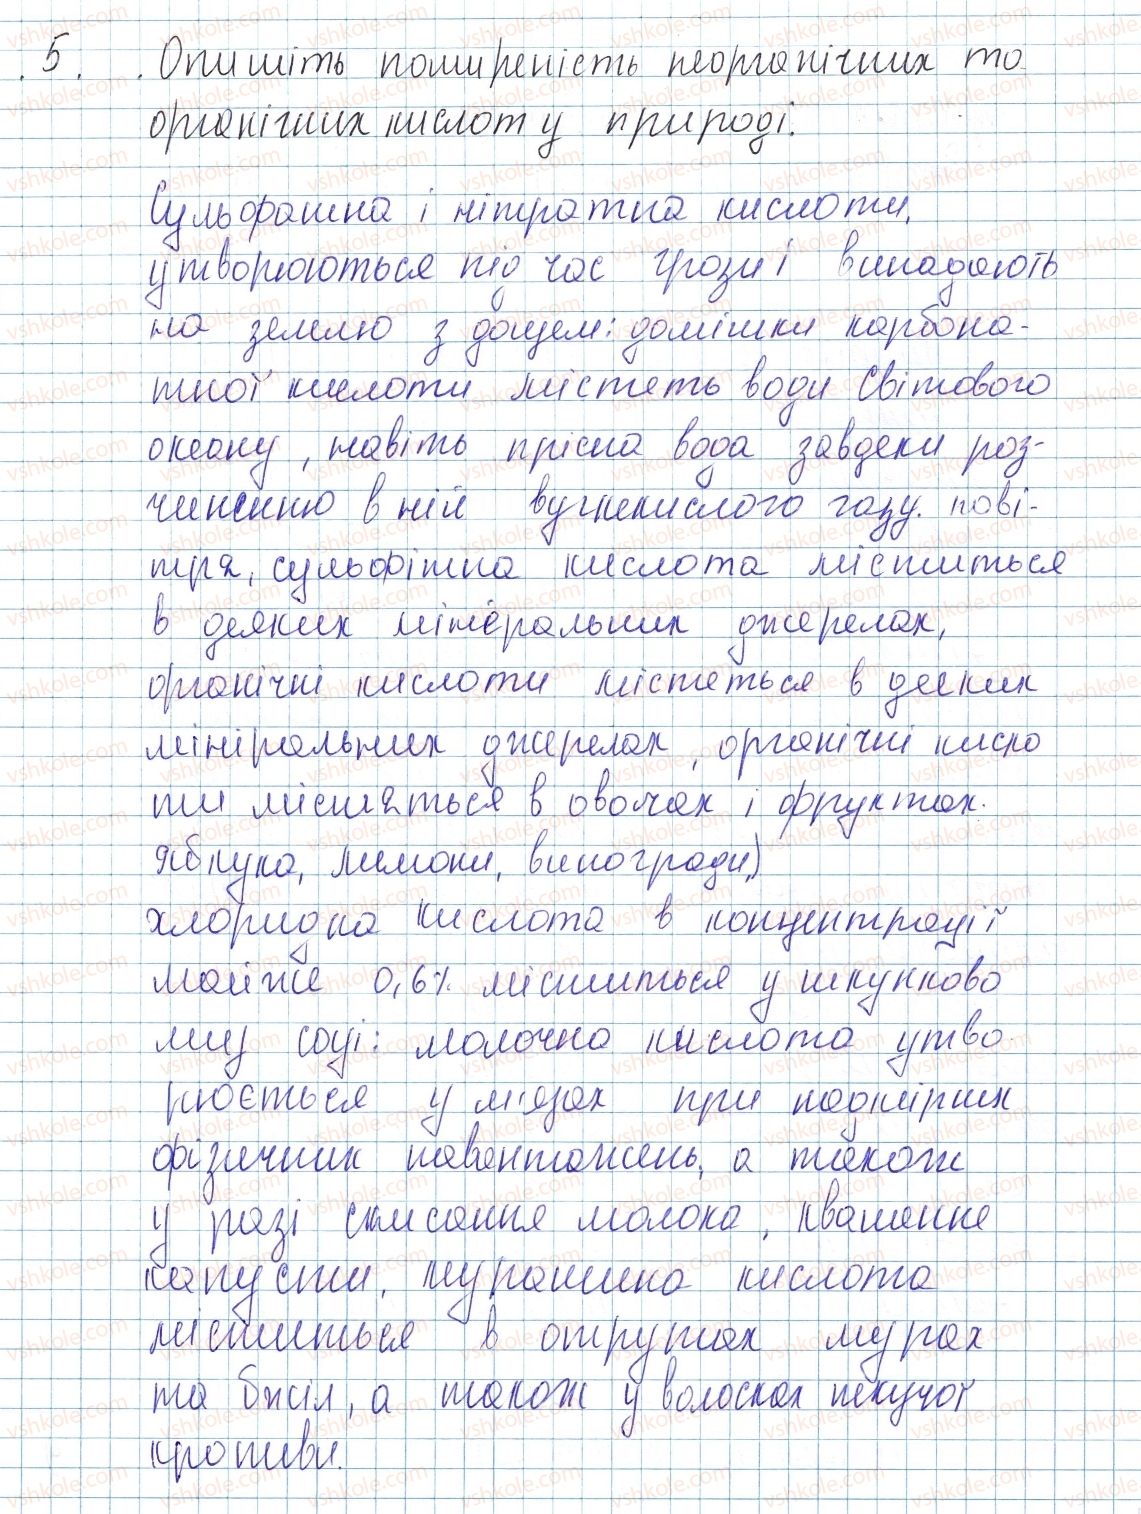 5. Опишіть поширеність неорганічних та
органічних кислот у природі.
Сульфатна і нітратна кислоти,
утворюються під час грози і випадають
на землю з дощем: домішки карбона-
тної кислоти містеть води Світового
океану, навіть прісна вода завдеки роз-
чиненню в ній вуглекислого газу. пові-
тря, сульфітна кислота міститься
в деяких мінеральних джерелах,
органічні кислоти містеться в деяких
мініральних джерелах, органічні кисло
ти містяться в овочах і фруктах.
яблука, лимони, виногради,)
хлоридна кислота в концентрації
майже 0,6% міститься у шлунково
му соці: молочна кислота утво
рюється у м'язах при надмірних
фізичних навантажень, а також
у разі скисання молока, квашення
капусти, мурашина кислота
міститься в отрутах мурах
та бжіл, а також у волосках пекучої
кропиви.